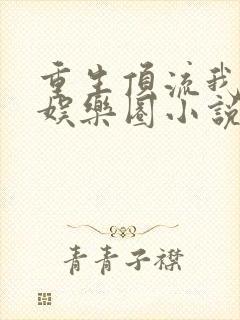 重生頂流我
娛樂圈小説
青青子襟